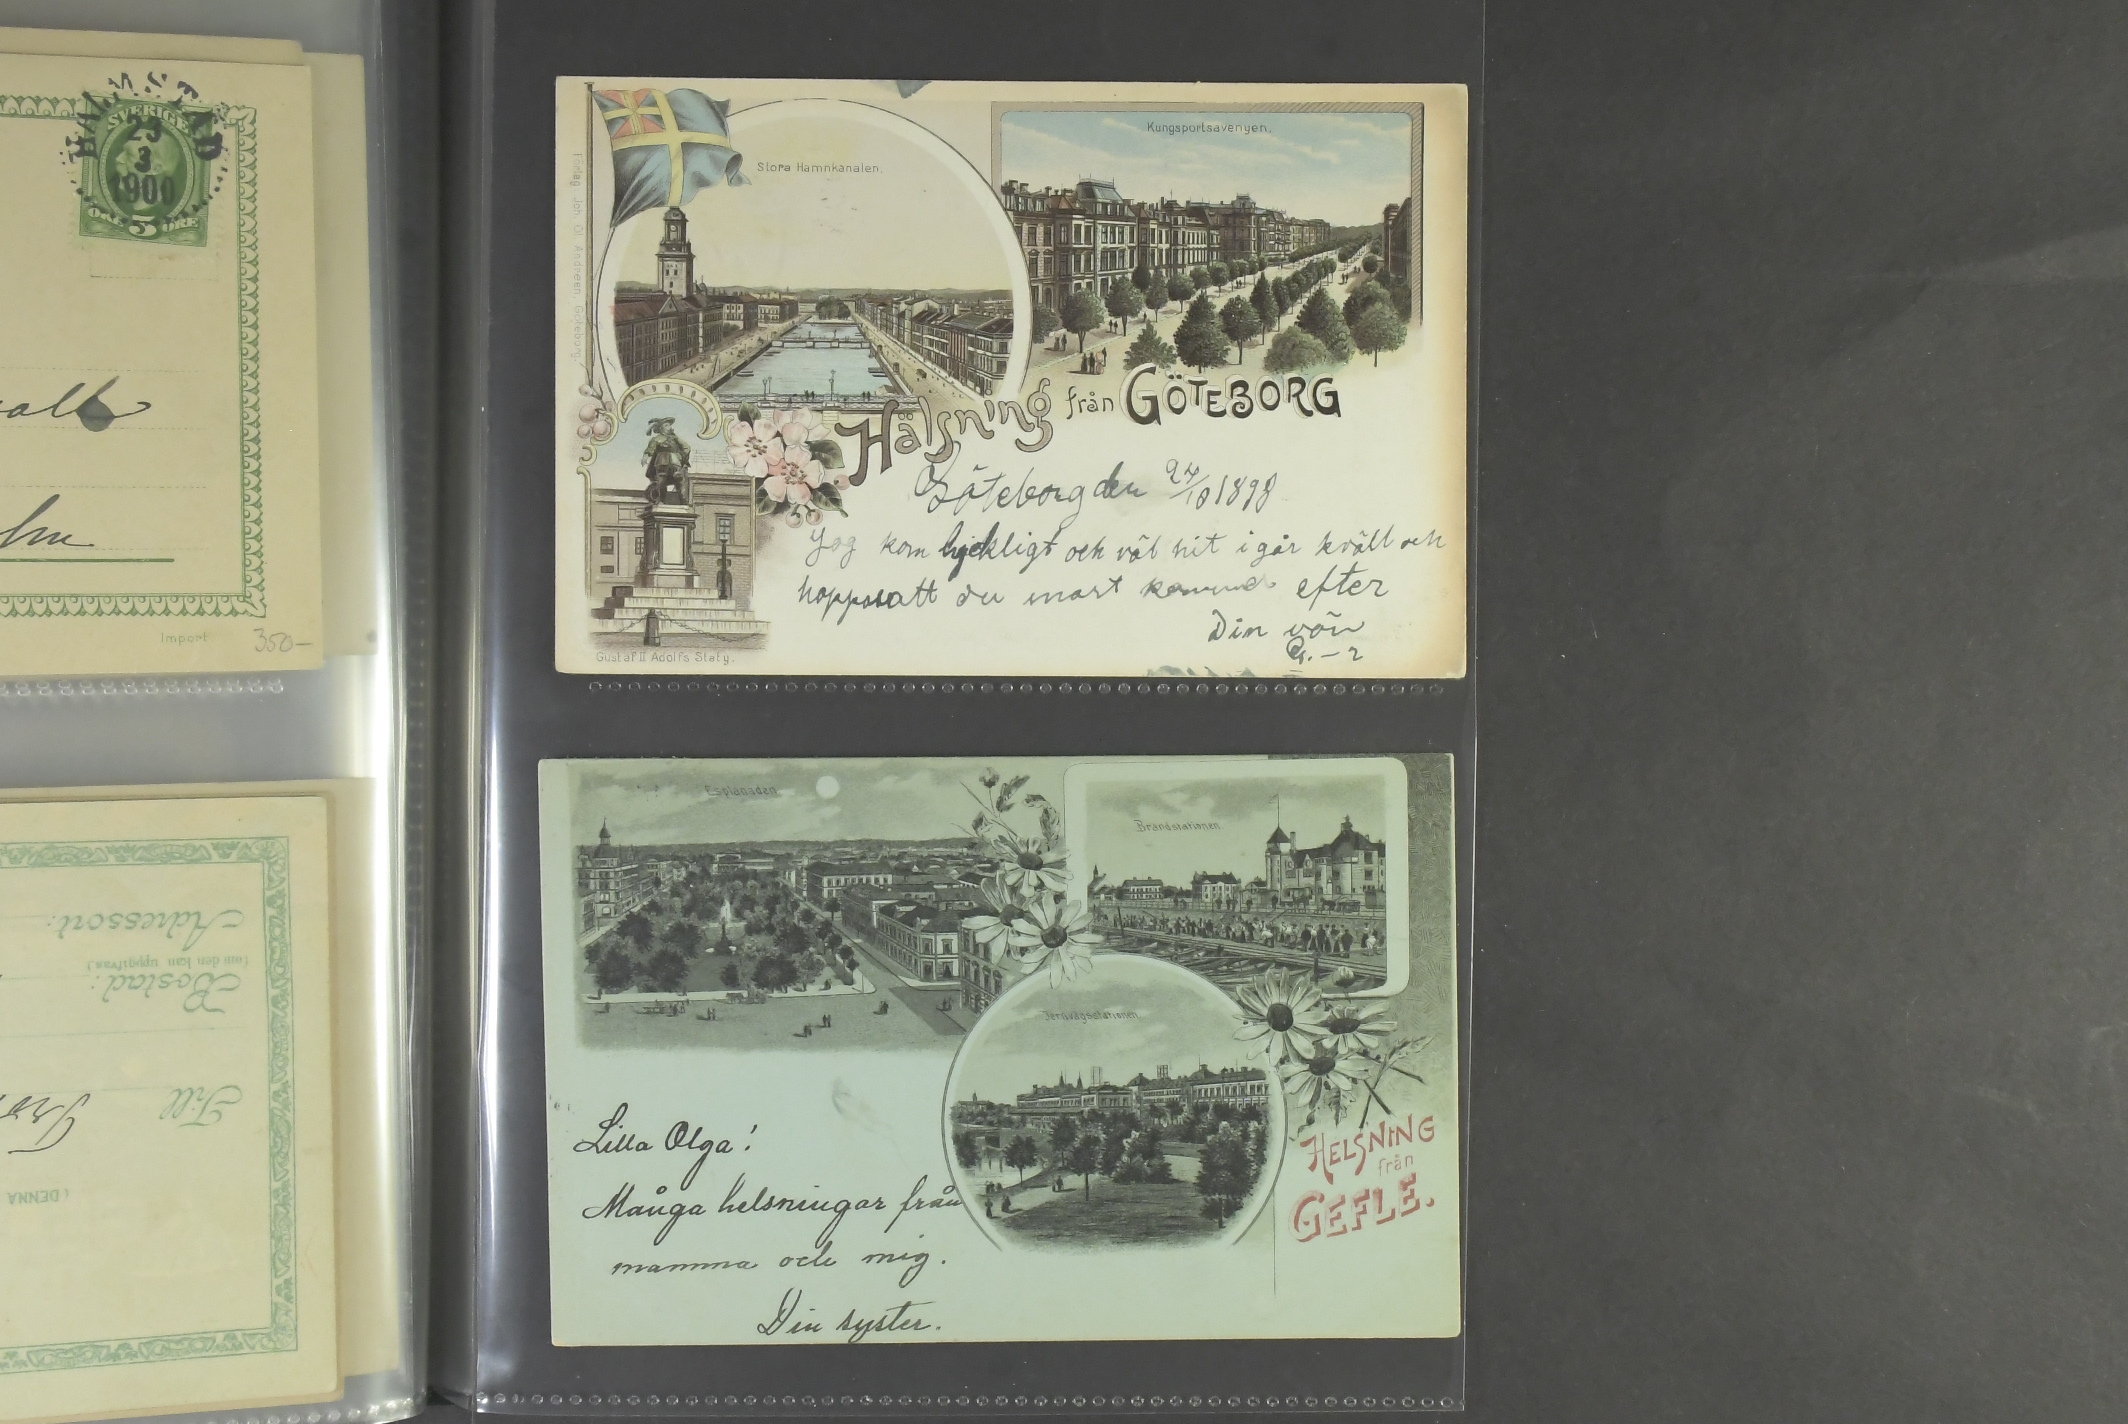 HALMSTAD
SVERIGE
23
3
1900
5
ÖRE
Import
350-
Adressort:
Bostad:
(om den kan uppgifvas)
Till
(DENNA
Förlag Joh. Ol. Andreen, Göteborg.
Stora Hamnkanalen.
Kungsportsavenyen.
Hälsning från GÖTEBORG
Gustaf II Adolfs Staty.
Göteborg den 24/10 1898
Jag kom lyckligt och väl hit i går kväll och
hoppas att du snart kommer efter
Din vän
Esplanaden
Brandstationen.
Jernvägsstationen.
HELSNING
från
GEFLE.
Lilla Olga!
Många helsningar från
mamma och mig.
Din syster.